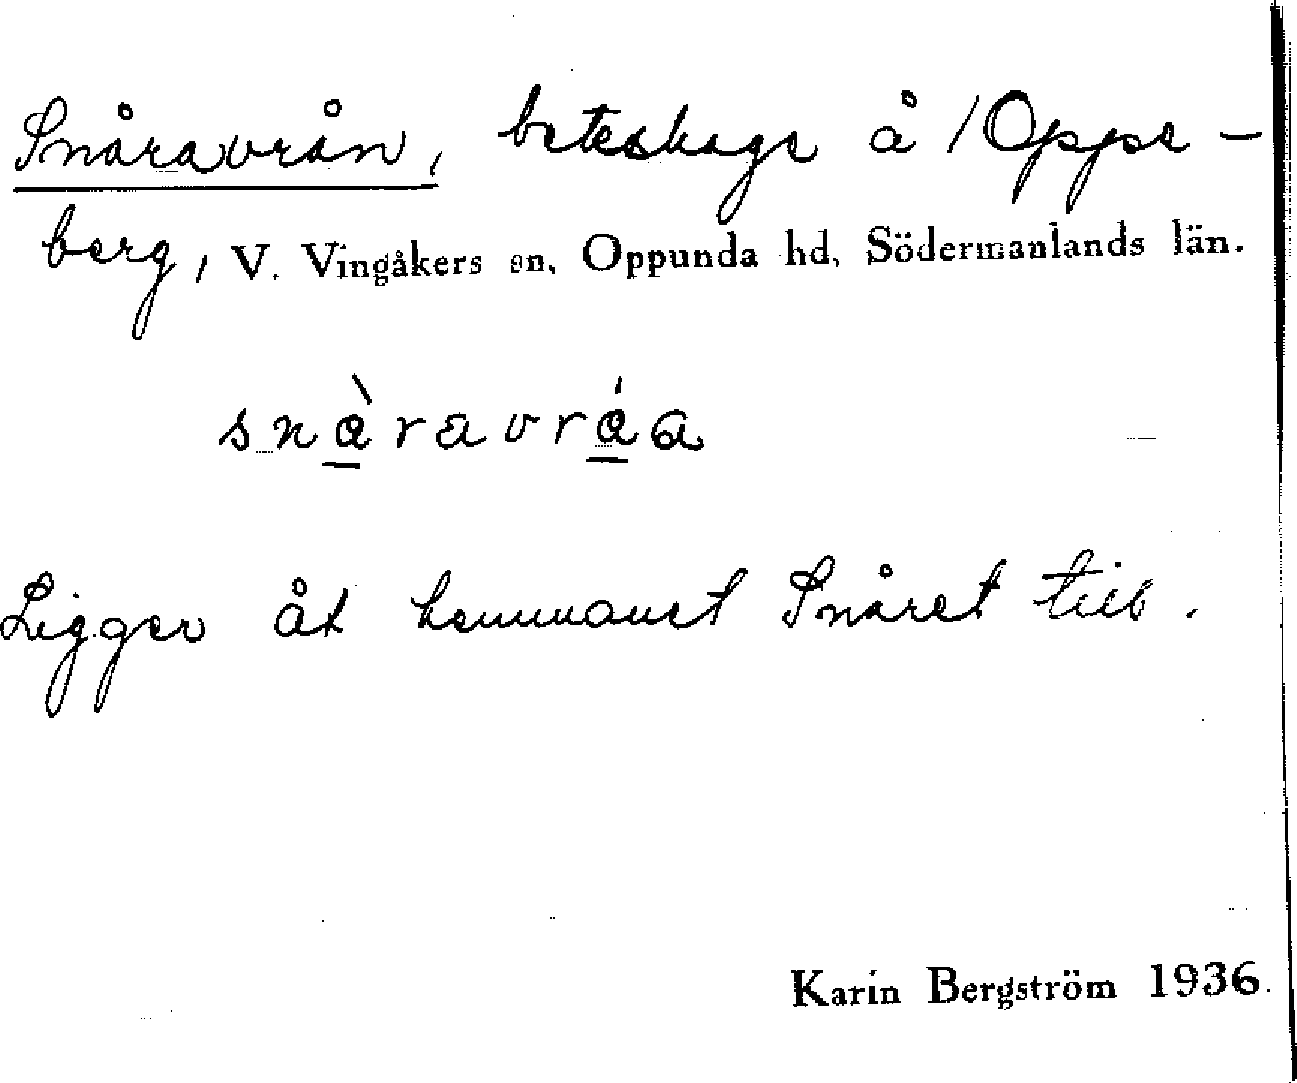 Snåravrån, beteshage å /Oppe-
berg, V. Vingåkers sn, Oppunda hd, Södermanlands län.
snàravráa
Ligger åt hemmanet Snåret till.
Karin Bergström 1936.